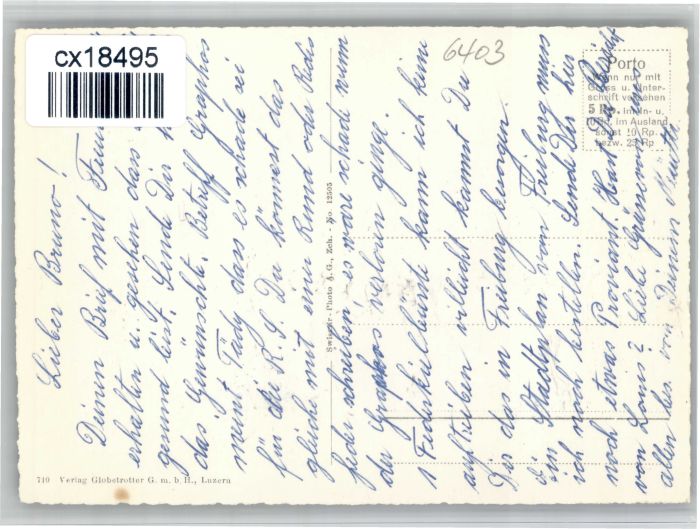 cx18495
6403
Porto
Wenn nur mit
Gruss u. Unter-
schrift versehen
5 Rp. im In- u.
10 Rp. im Ausland
sonst 10 Rp.
bezw. 25 Rp
Lieber Bruno!
Deinen Brief mit
erhalten u. gesehen das
gesund bist. Sende Dir
das Gewünschte. Betreff Graphos
meint Tädy dass es schade sei
für die R.S. Du könntest das
gleiche mit einer Rund oder Redis
feder schreiben, es wäre schade wenn
der Graphos verloren ginge.
1 Federkielbürste kann ich keine
auftreiben villeicht kannst Du
Dir das in Freiburg besorgen.
Stadtplan von Freiburg muss
ich noch bestellen. Sende Dir hier
noch etwas Proviant. Hast
von Louis? Liebe Grüsse von
allen bes. von Deinem Mutti.
Swisair-Photo A.G., Zch. - No. 12505
710 Verlag Globetrotter G. m. b. H., Luzern